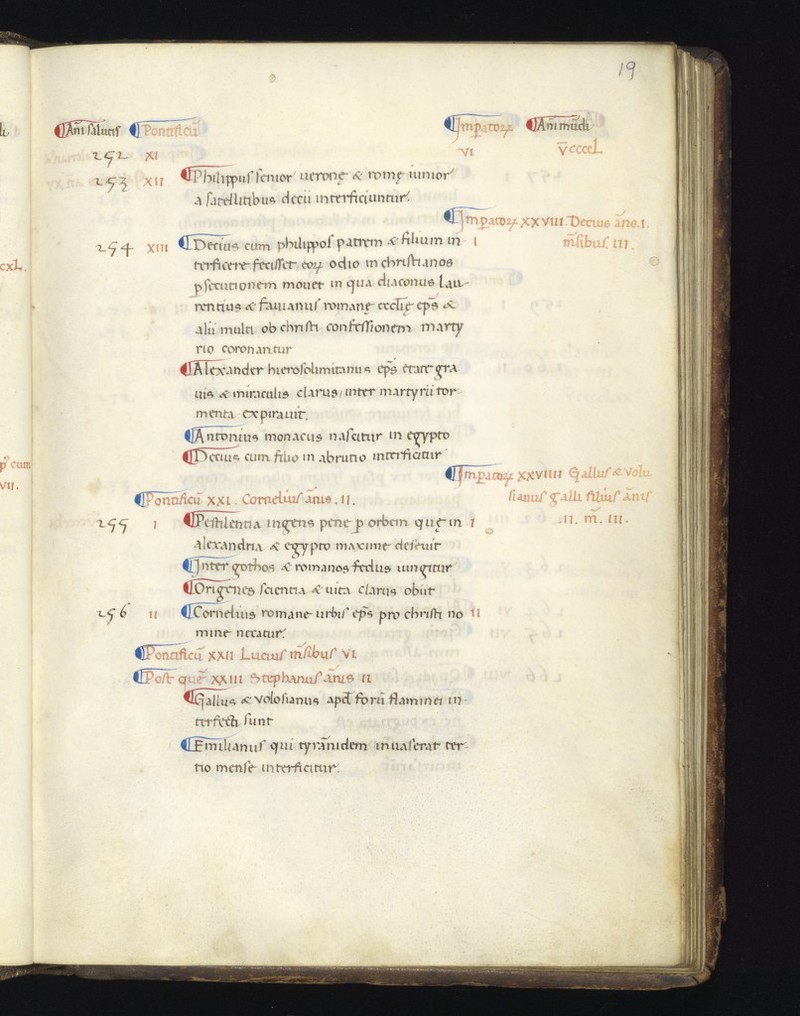 19
Añi salutis Pontificũ Imꝑatoꝝ Añi mũdi
252 XI VI V̄ccccL
253 XII Philippus senior ueronę & romę iunior
a satellitibus decii interficiuntur.
Imꝑatoꝝ XXVIII. Decius año. I.
254 XIII Decius cum philippos patrem & filium in- I m̃sibus III.
terficere fecisset eoꝝ odio in christianos
ꝑsecutionem mouet in qua diaconus Lau-
rentius & fauianus romanę eccl̃ię ep̃s &
alii multi ob christi confessionem marty
rio coronantur
Alexander hierosolimitanus ep̃s etate gra
uis & miraculis clarus inter martyrii tor-
menta expirauit.
Antonius monacus nascitur in egypto
Decius cum filio in abrutio interficitur
Imꝑatoꝝ XXVIIII Gallus & Volu
Pontificũ XXI. Cornelius ãnis. II. sianus galli filius ãnis
255 I Pestilentia ingens pene ꝑ orbem quę in I .II. m̃. III.
alexandria & egypto maxime deseuit
Inter gothos & romanos fedus iungitur
Origenes scientia & uita clarus obiit
256 II Cornelius romane urbis ep̃s pro christi no II
mine necatur.
Pontificũ XXII Lucius m̃sibus VI
Post quẽ XXIII Stephanus ãnis II
Gallus & Volosianus apd̃ forũ flaminei in-
terfecti sunt
Emilianus qui tyrãnidem inuaserat ter-
tio mense interficitur.
cxL.
ꝑ cum
VII.